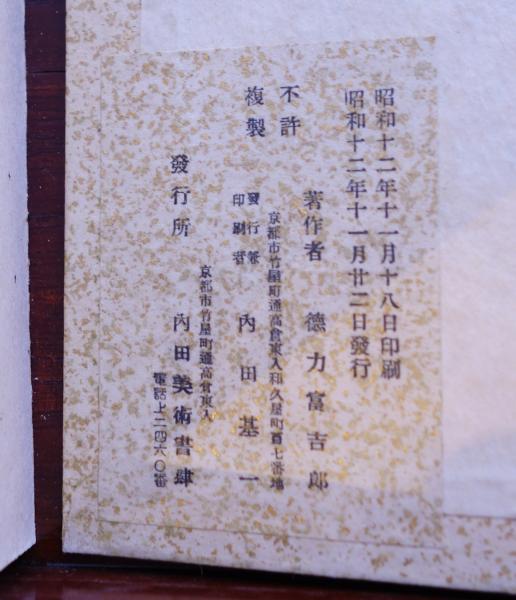 昭和十二年十一月十八日印刷
昭和十二年十一月廿二日發行
不許
複製
著作者 德力富吉郎
京都市竹屋町通高倉東入和久屋町百七番地
發行兼
印刷者
內田基一
京都市竹屋町通高倉東入
發行所 內田美術書肆
電話上二四六〇番